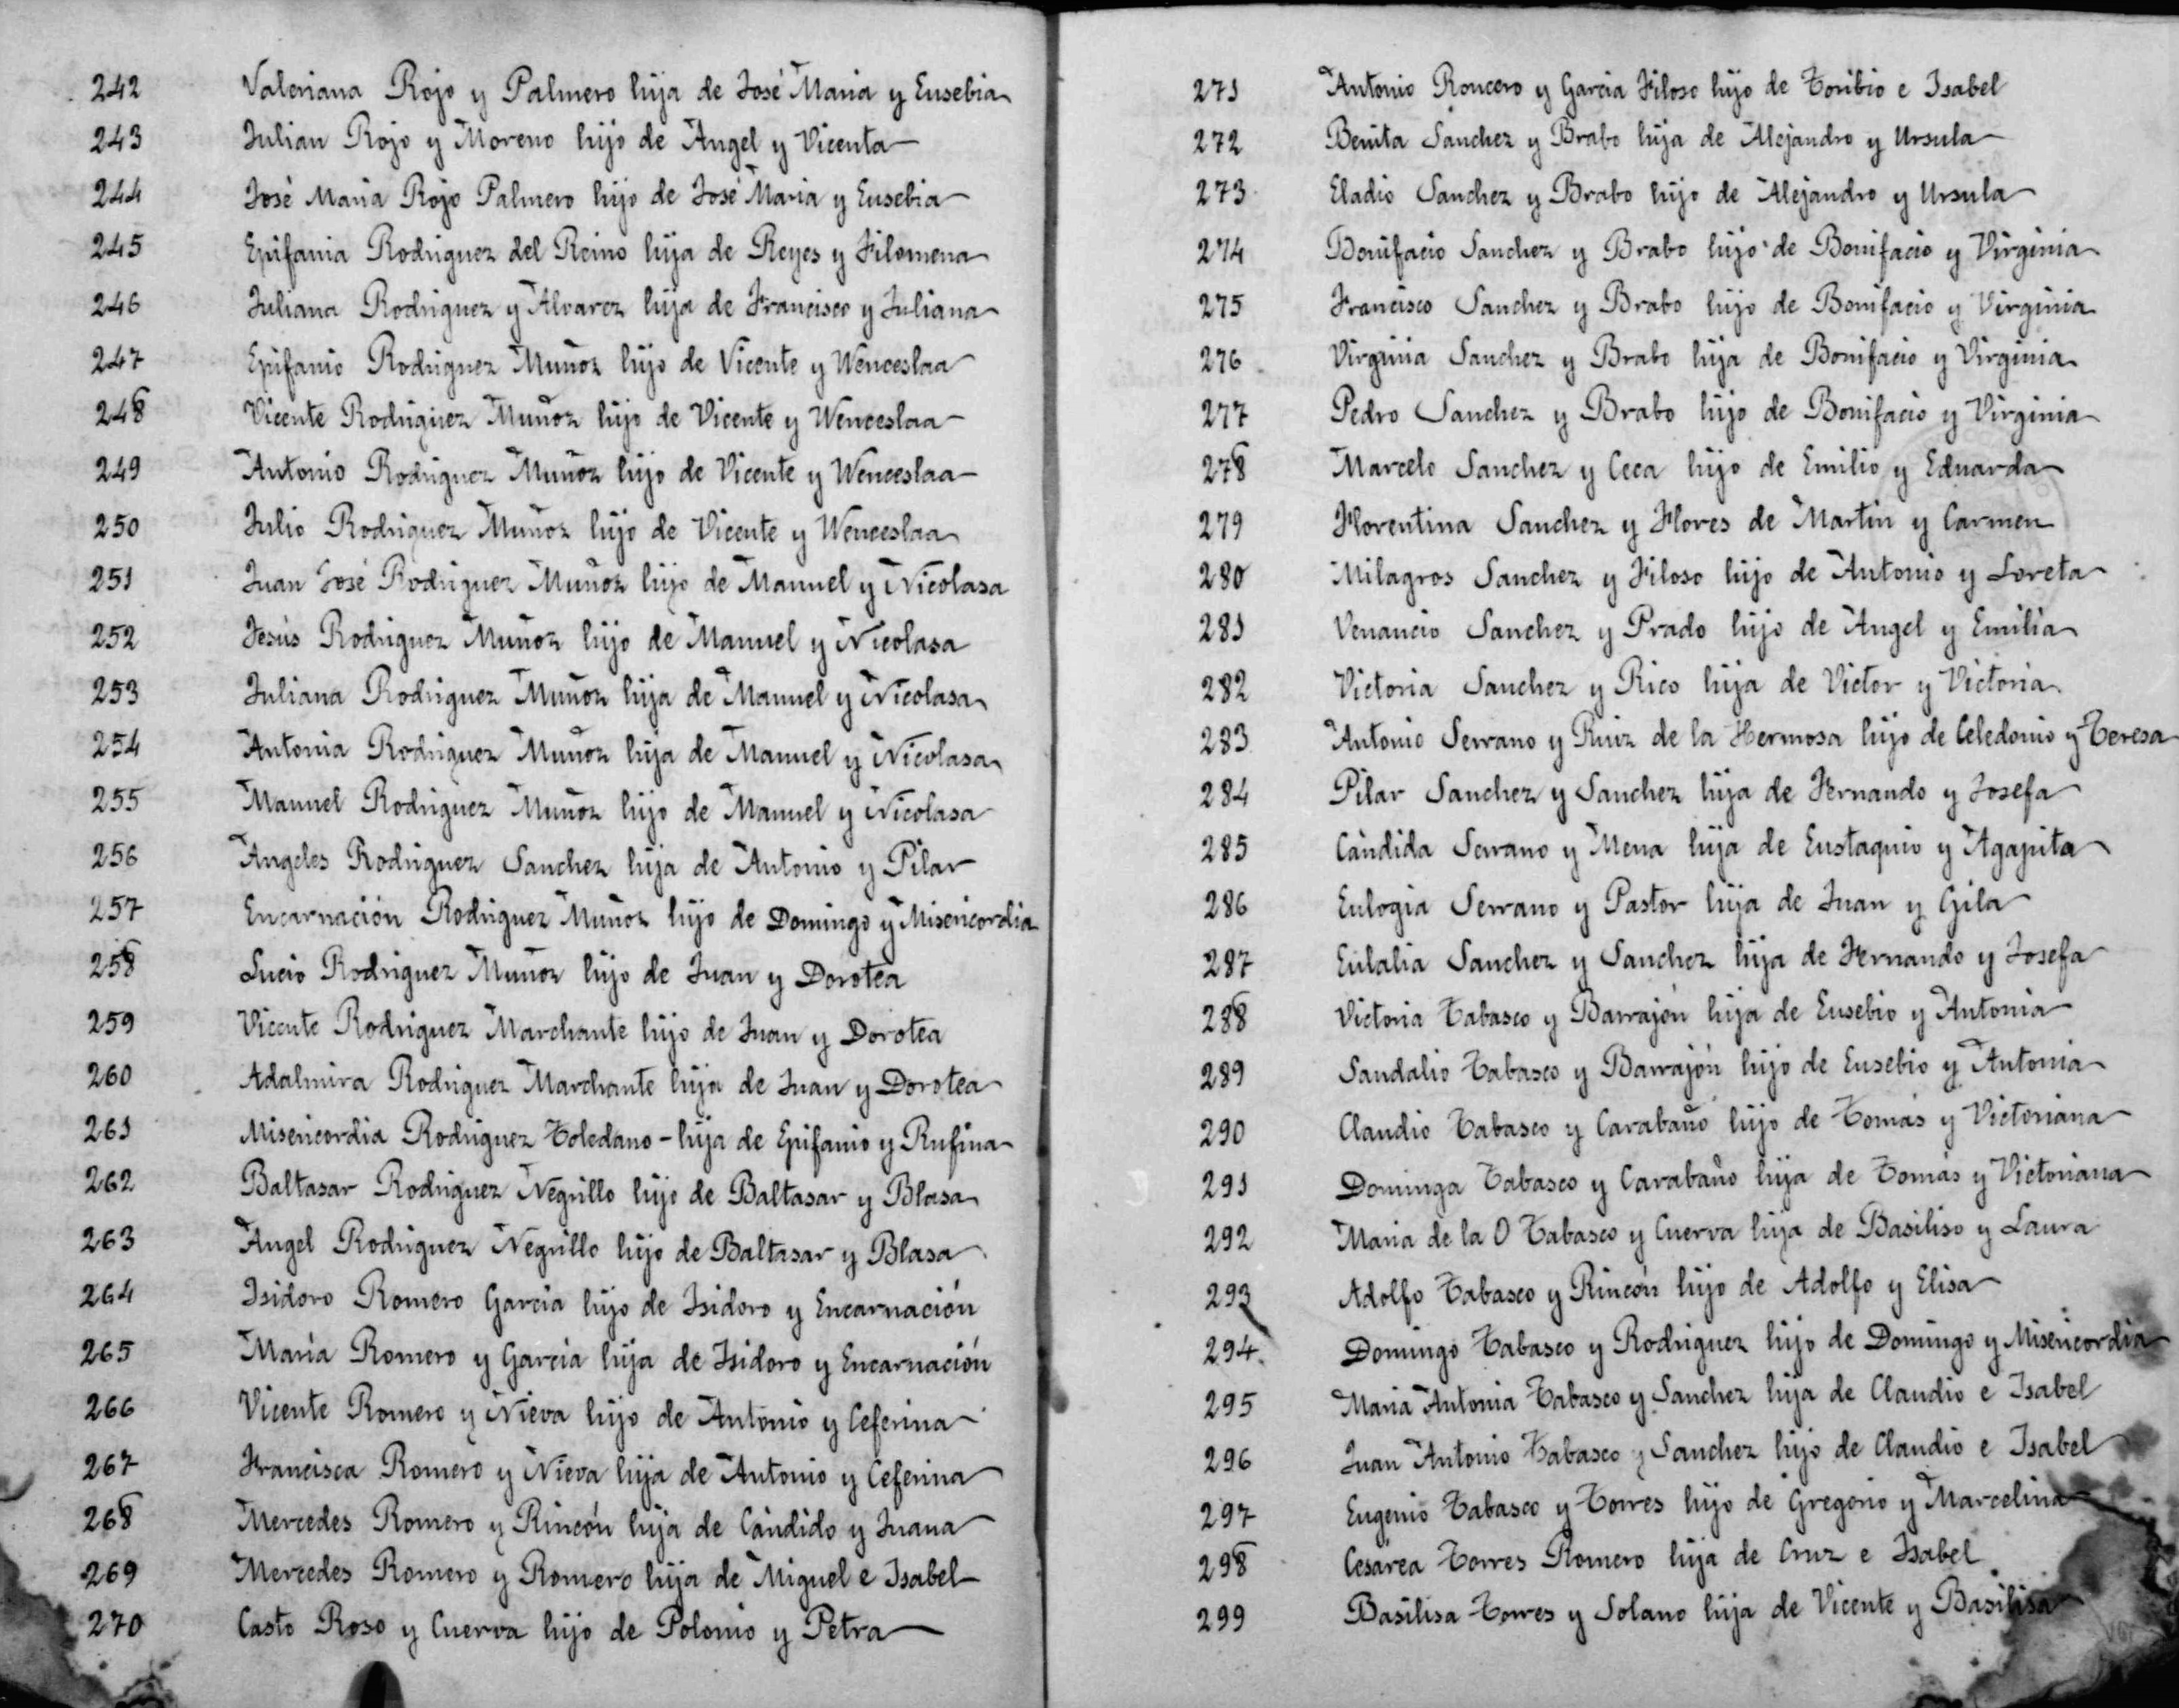 242 Valeriana Rojo y Palmero hija de José Maria y Eusebia
243 Julian Rojo y Moreno hijo de Angel y Vicenta
244 José Maria Rojo Palmero hijo de José Maria y Eusebia
245 Epifania Rodriguez del Reino hija de Reyes y Filomena
246 Juliana Rodriguez y Alvarez hija de Francisco y Juliana
247 Epifanio Rodriguez Muñoz hijo de Vicente y Wenceslaa
248 Vicente Rodriguez Muñoz hijo de Vicente y Wenceslaa
249 Antonio Rodriguez Muñoz hijo de Vicente y Wenceslaa
250 Julio Rodriguez Muñoz hijo de Vicente y Wenceslaa
251 Juan José Rodriguez Muñoz hijo de Manuel y Nicolasa
252 Jesús Rodriguez Muñoz hijo de Manuel y Nicolasa
253 Juliana Rodriguez Muñoz hija de Manuel y Nicolasa
254 Antonia Rodriguez Muñoz hija de Manuel y Nicolasa
255 Manuel Rodriguez Muñoz hijo de Manuel y Nicolasa
256 Angeles Rodriguez Sanchez hija de Antonio y Pilar
257 Encarnación Rodriguez Muñoz hijo de Domingo y Misericordia
258 Lucio Rodriguez Muñoz hijo de Juan y Dorotea
259 Vicente Rodriguez Marchante hijo de Juan y Dorotea
260 Adalmira Rodriguez Marchante hija de Juan y Dorotea
261 Misericordia Rodriguez Toledano - hija de Epifanio y Rufina
262 Baltasar Rodriguez Negrillo hijo de Baltasar y Blasa
263 Angel Rodriguez Negrillo hijo de Baltasar y Blasa
264 Isidoro Romero Garcia hijo de Isidoro y Encarnación
265 María Romero y García hija de Isidoro y Encarnación
266 Vicente Romero y Nieva hijo de Antonio y Ceferina
267 Francisca Romero y Nieva hija de Antonio y Ceferina
268 Mercedes Romero y Rincón hija de Cándido y Juana
269 Mercedes Romero y Romero hija de Miguel e Isabel
270 Casto Roso y Cuerva hijo de Polonio y Petra
271 Antonio Roncero y Garcia Filoso hijo de Toribio e Isabel
272 Benita Sanchez y Brabo hija de Alejandro y Ursula
273 Eladio Sanchez y Brabo hijo de Alejandro y Ursula
274 Bonifacio Sanchez y Brabo hijo de Bonifacio y Virginia
275 Francisco Sanchez y Brabo hijo de Bonifacio y Virginia
276 Virginia Sanchez y Brabo hija de Bonifacio y Virginia
277 Pedro Sanchez y Brabo hijo de Bonifacio y Virginia
278 Marcelo Sanchez y Ceca hijo de Emilio y Eduarda
279 Florentina Sanchez y Flores de Martin y Carmen
280 Milagros Sanchez y Filoso hijo de Antonio y Loreta
281 Venancio Sanchez y Prado hijo de Angel y Emilia
282 Victoria Sanchez y Rico hija de Victor y Victoria
283 Antonio Serrano y Ruiz de la Hermosa hijo de Celedonio y Teresa
284 Pilar Sanchez y Sanchez hija de Fernando y Josefa
285 Cándida Serrano y Mena hija de Eustaquio y Agapita
286 Eulogia Serrano y Pastor hija de Juan y Gila
287 Eulalia Sanchez y Sanchez hija de Fernando y Josefa
288 Victoria Tabasco y Barrajón hija de Eusebio y Antonia
289 Sandalio Tabasco y Barrajón hijo de Eusebio y Antonia
290 Claudio Tabasco y Carabaño hijo de Tomás y Victoriana
291 Dominga Tabasco y Carabaño hija de Tomás y Victoriana
292 Maria de la O Tabasco y Cuerva hija de Basiliso y Laura
293 Adolfo Tabasco y Rincón hijo de Adolfo y Elisa
294 Domingo Tabasco y Rodriguez hijo de Domingo y Misericordia
295 Maria Antonia Tabasco y Sanchez hija de Claudio e Isabel
296 Juan Antonio Tabasco y Sanchez hijo de Claudio e Isabel
297 Eugenio Tabasco y Torres hijo de Gregorio y Marcelina
298 Cesárea Torres Romero hija de Cruz e Isabel
299 Basilisa Torres y Solano hija de Vicente y Basilisa